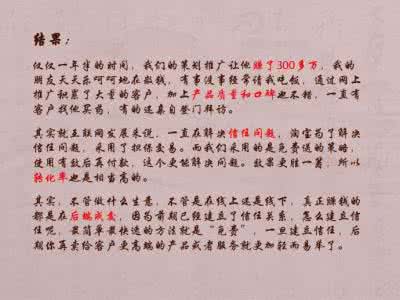 结果：
仅仅一年半的时间，我们的策划推广让他赚了300多万，我的
朋友天天乐呵呵地在数钱，有事没事经常请我吃饭，通过网上
推广积累了大量的客户，加上产品质量和口碑也不错，一直有
客户找他买药，有的还亲自登门拜访。
其实就互联网发展来说，一直在解决信任问题，淘宝为了解决
信任问题，采用了担保交易。而我们采用的是免费送的策略，
使用有效后再付款，这个更能解决问题。效果更胜一筹，所以
转化率也是相当高的。
其实，不管做什么生意，不管是在线上还是线下，真正赚钱的
都是在后端成交，因为前期已经建立了信任关系，怎么建立信
任呢，最简单最快速的方法就是“免费”，一旦建立信任，后
期你再卖给客户更高端的产品或者服务就更加轻而易举了。